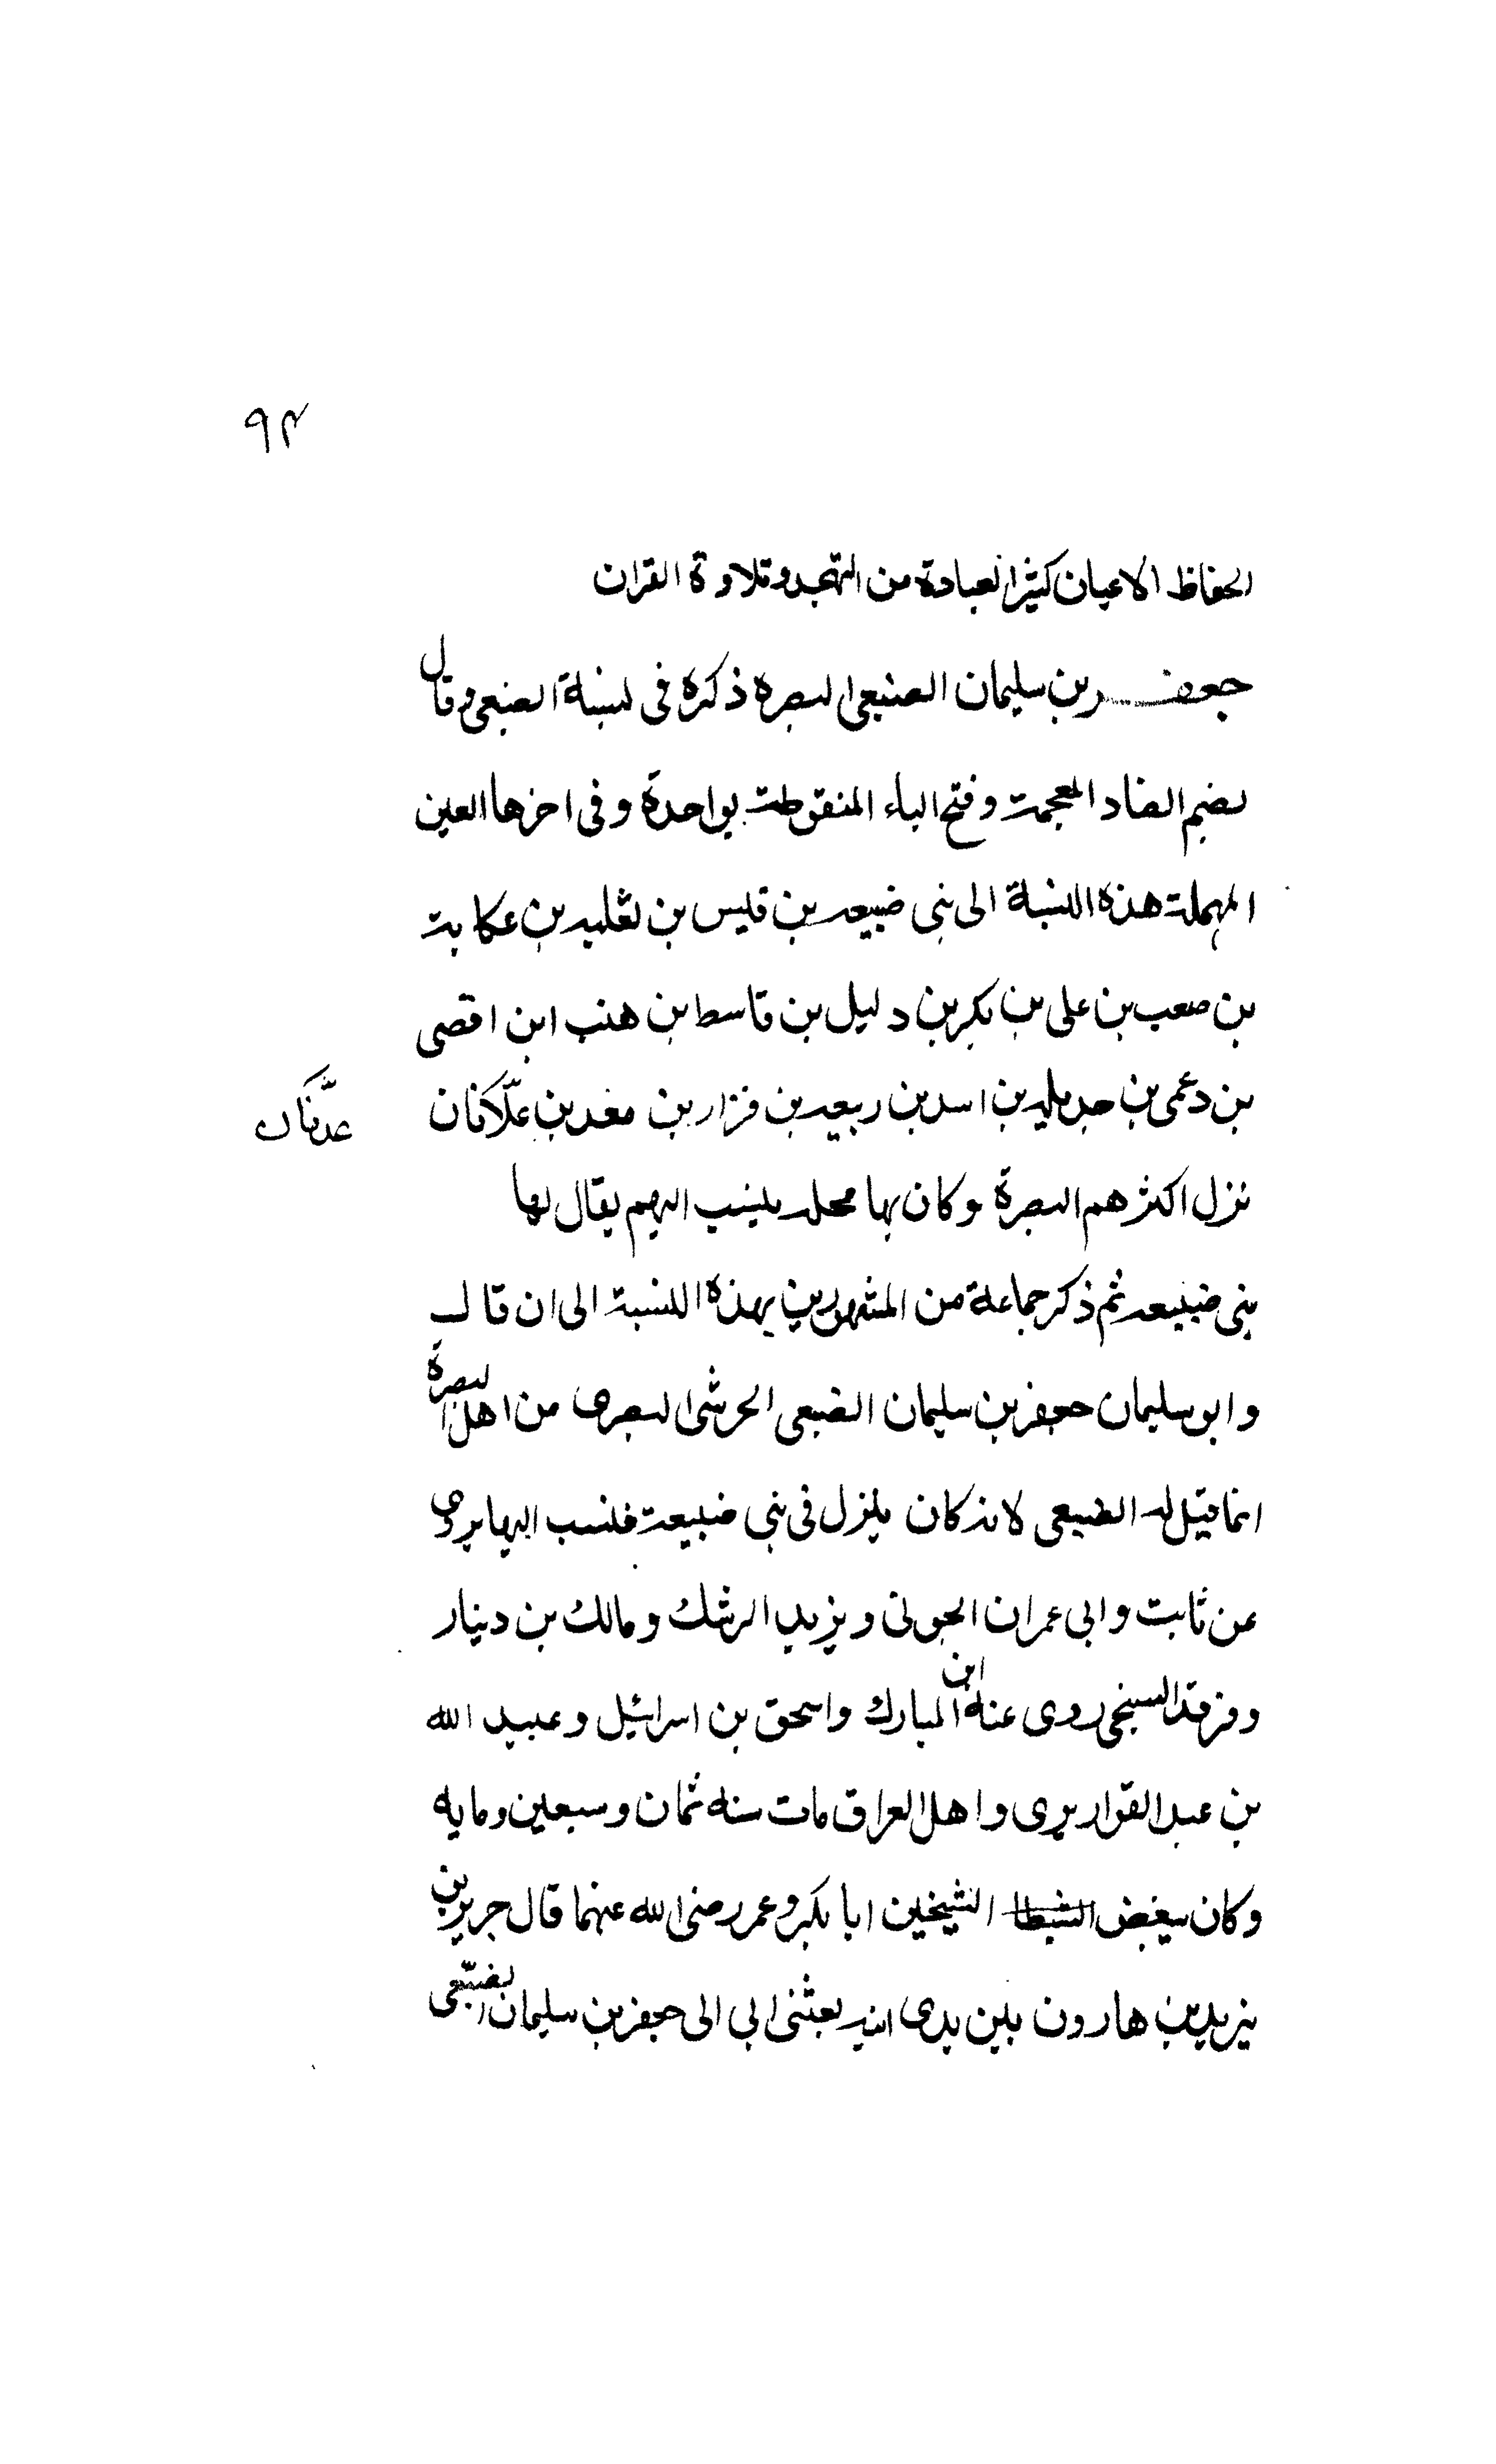 ٩٣
الحفاظ الاعيان كثير العبادة من التهجد وتلاوة القران
جعفر بن سليمان الضبعى البصره ذكره فى نسبة الضبعى وقال
بضم الضاد المعجمة وفتح الباء المنقوطة بواحدة وفى اخرها العين
المهملة هذه النسبة الى بنى ضبيعه بن قيس بن ثعلبه بن عكابة
بن صعب بن على بن بكر بن دليل بن قاسط بن هنب ابن اقصى
بن دعمى بن جديله بن اسد بن ربيعه بن نزار بن معد بن علّاكانان
عدّنان
نزل اكثرهم البصرة وكان بها محله ينسب اليهم يقال لها
بنى ضبيعه ثم ذكر جماعة من المشهورين بهذه النسبة الى ان قال
وابو سليمان جعفر بن سليمان الضبعى الحرشى البصرى من اهل البصرة
انما قيل له الضبعى لانه كان ينزل فى بنى ضبيعة فنسب اليها يروى
عن ثابت وابى عمران الجونى ويزيد الرشك ومالك بن دينار
وفرقد السبخى روى عنه ابن المبارك واسحق بن اسرائيل وعبيد الله
بن عبد القواريرى واهل العراق مات سنه ثمان وسبعين ومايه
وكان يبغض الشيخين ابا بكر وعمر رضى الله عنهما قال جرير بن
يزيد بن هارون بين يدى ابيه بعثنى ابى الى جعفر بن سليمان الضبّعى